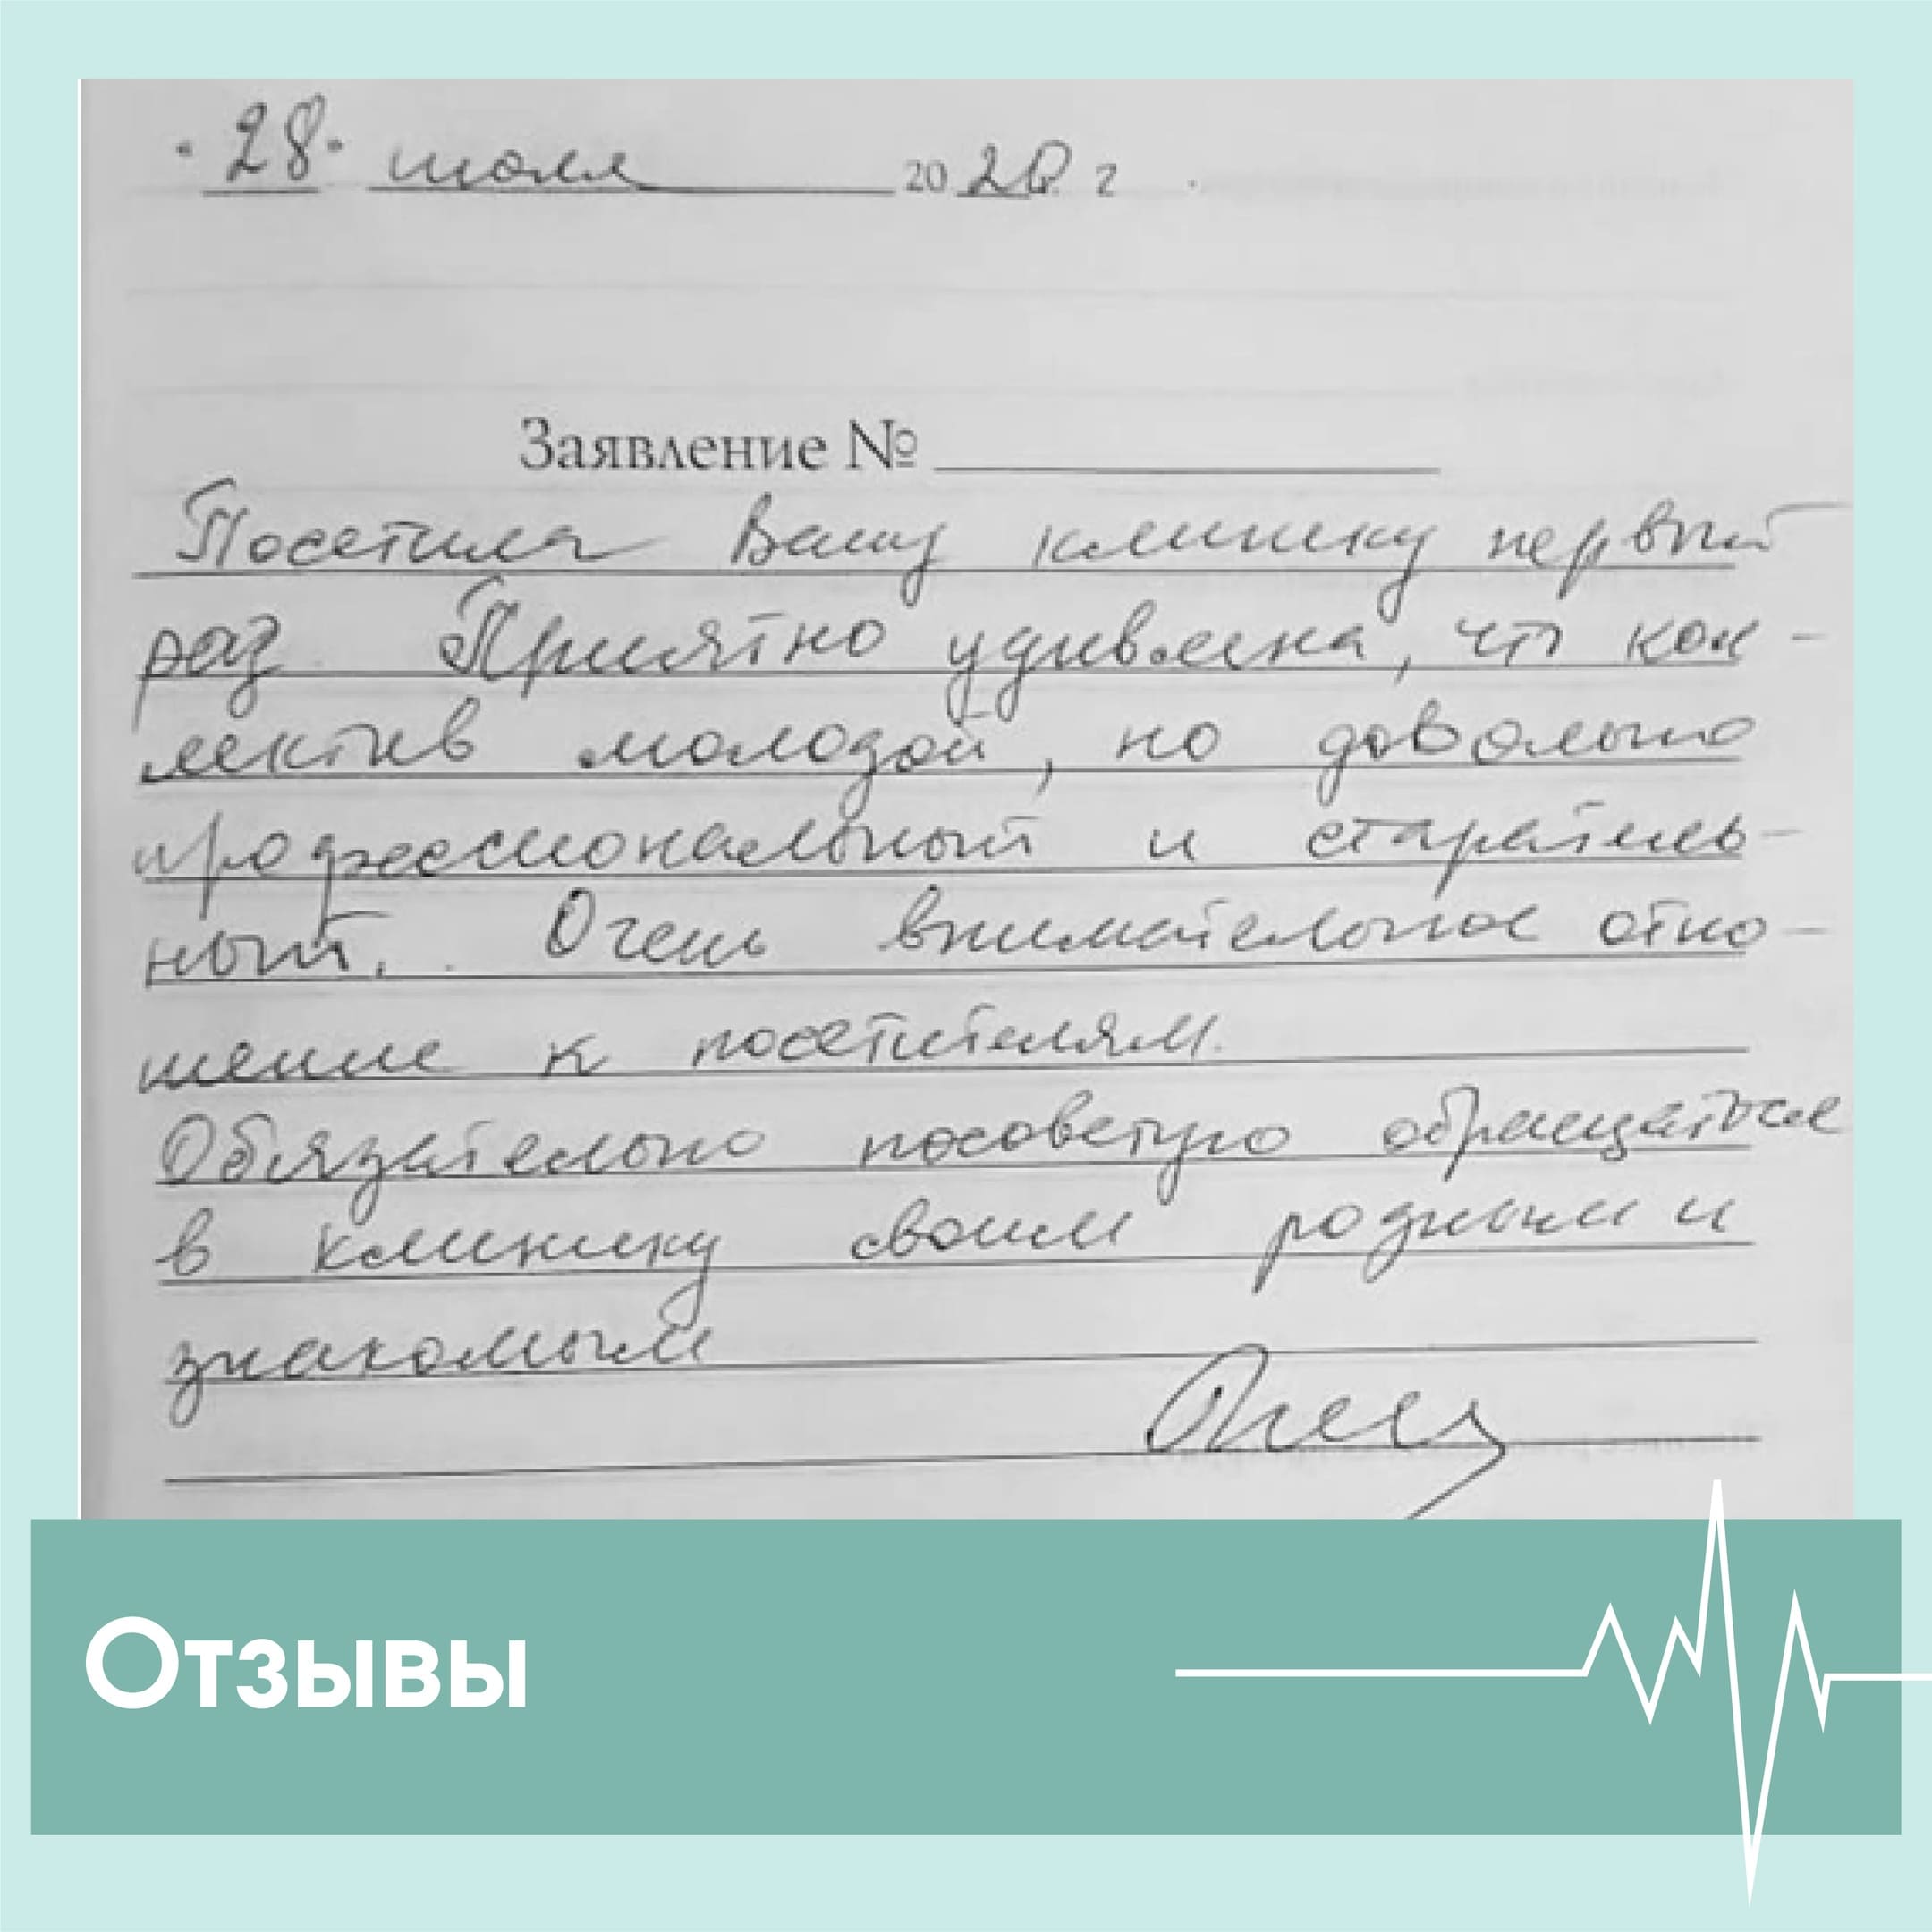 «28» июля 2020 г
Заявление №
Посетила Вашу клинику первый
раз. Приятно удивлена, что кол-
лектив молодой, но довольно
профессиональный и старатель-
ный. Очень внимательное отно-
шение к посетителям.
Обязательно посоветую обращаться
в клинику своим родным и
знакомым
Отзывы